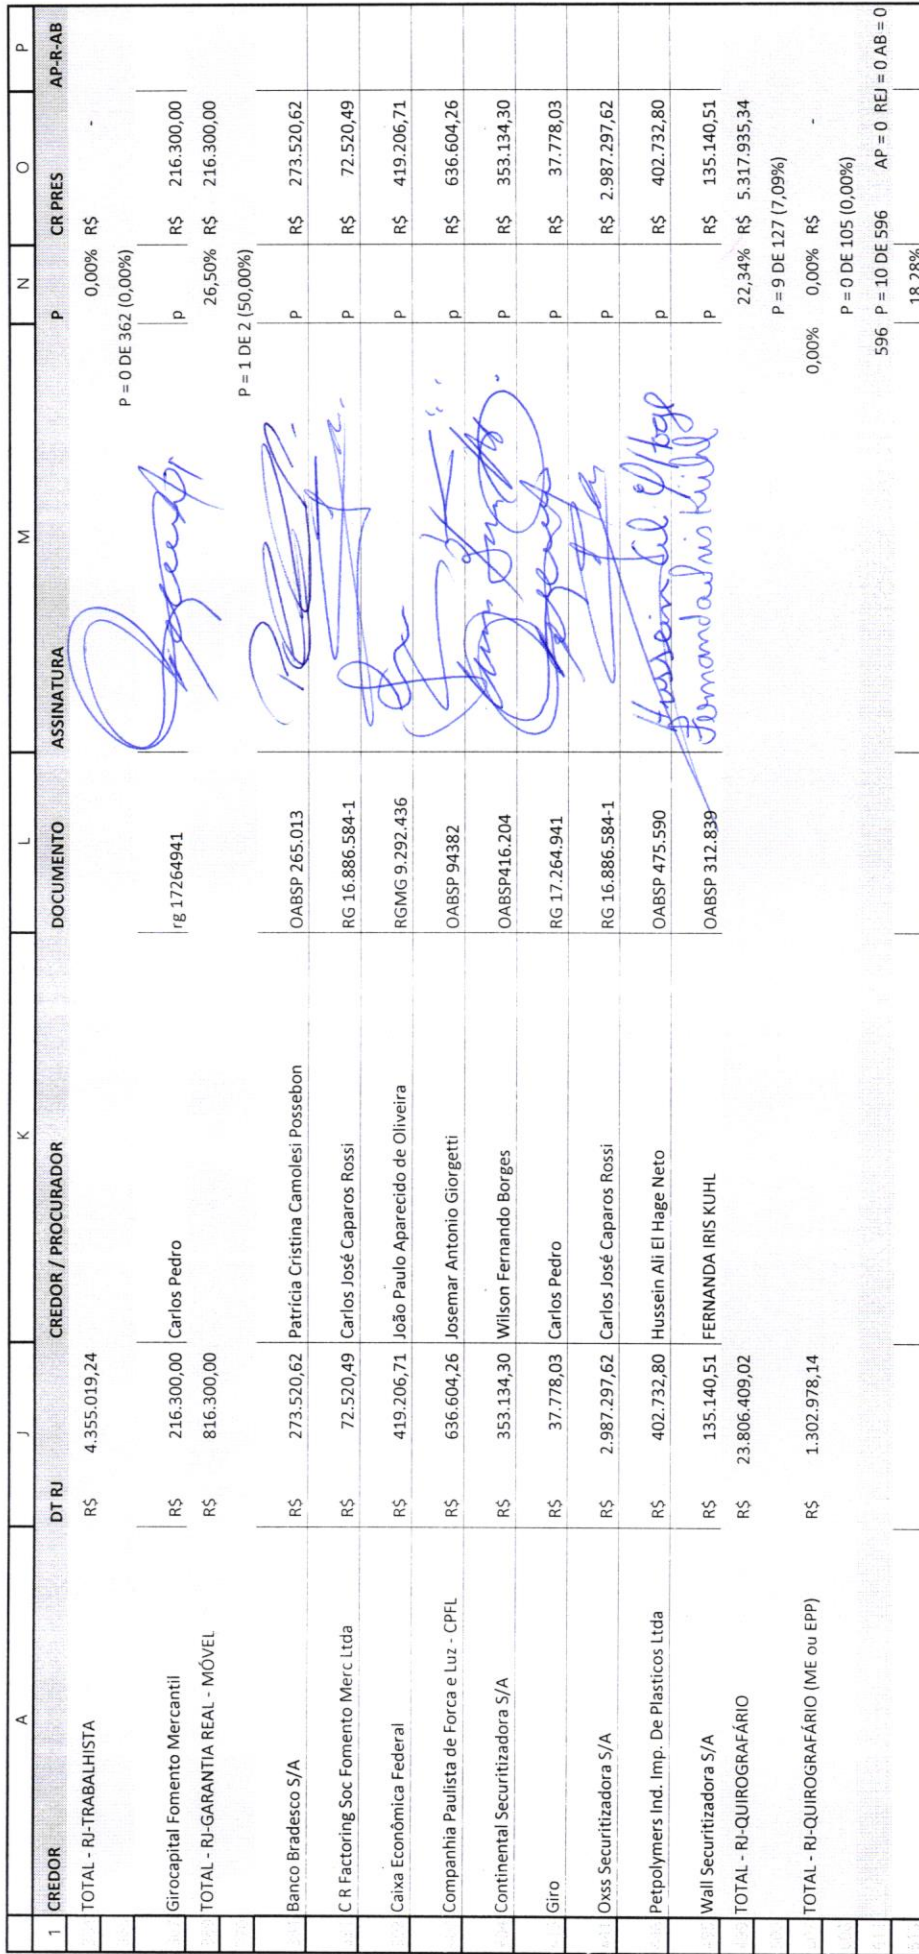 A J K L M N O P
1 CREDOR DT RJ CREDOR / PROCURADOR DOCUMENTO ASSINATURA P CR PRES AP-R-AB
TOTAL - RJ-TRABALHISTA R$ 4.355.019,24 0,00% R$ -
P = 0 DE 362 (0,00%)
Girocapital Fomento Mercantil R$ 216.300,00 Carlos Pedro rg 17264941 p R$ 216.300,00
TOTAL - RJ-GARANTIA REAL - MÓVEL R$ 816.300,00 26,50% R$ 216.300,00
P = 1 DE 2 (50,00%)
Banco Bradesco S/A R$ 273.520,62 Patrícia Cristina Camolesi Possebon OABSP 265.013 P R$ 273.520,62
C R Factoring Soc Fomento Merc Ltda R$ 72.520,49 Carlos José Caparos Rossi RG 16.886.584-1 P R$ 72.520,49
Caixa Econômica Federal R$ 419.206,71 João Paulo Aparecido de Oliveira RGMG 9.292.436 P R$ 419.206,71
Companhia Paulista de Forca e Luz - CPFL R$ 636.604,26 Josemar Antonio Giorgetti OABSP 94382 p R$ 636.604,26
Continental Securitizadora S/A R$ 353.134,30 Wilson Fernando Borges OABSP416.204 P R$ 353.134,30
Giro R$ 37.778,03 Carlos Pedro RG 17.264.941 p R$ 37.778,03
Oxss Securitizadora S/A R$ 2.987.297,62 Carlos José Caparos Rossi RG 16.886.584-1 P R$ 2.987.297,62
Petpolymers Ind. Imp. De Plasticos Ltda R$ 402.732,80 Hussein Ali El Hage Neto OABSP 475.590 Hussein Ali El Hage p R$ 402.732,80
Wall Securitizadora S/A R$ 135.140,51 FERNANDA IRIS KUHL OABSP 312.839 Fernanda Iris Kuhl P R$ 135.140,51
TOTAL - RJ-QUIROGRAFÁRIO R$ 23.806.409,02 22,34% R$ 5.317.935,34
P = 9 DE 127 (7,09%)
TOTAL - RJ-QUIROGRAFÁRIO (ME ou EPP) R$ 1.302.978,14 0,00% 0,00% R$ -
P = 0 DE 105 (0,00%)
596 P = 10 DE 596 AP = 0 REJ = 0 AB = 0
18,28%